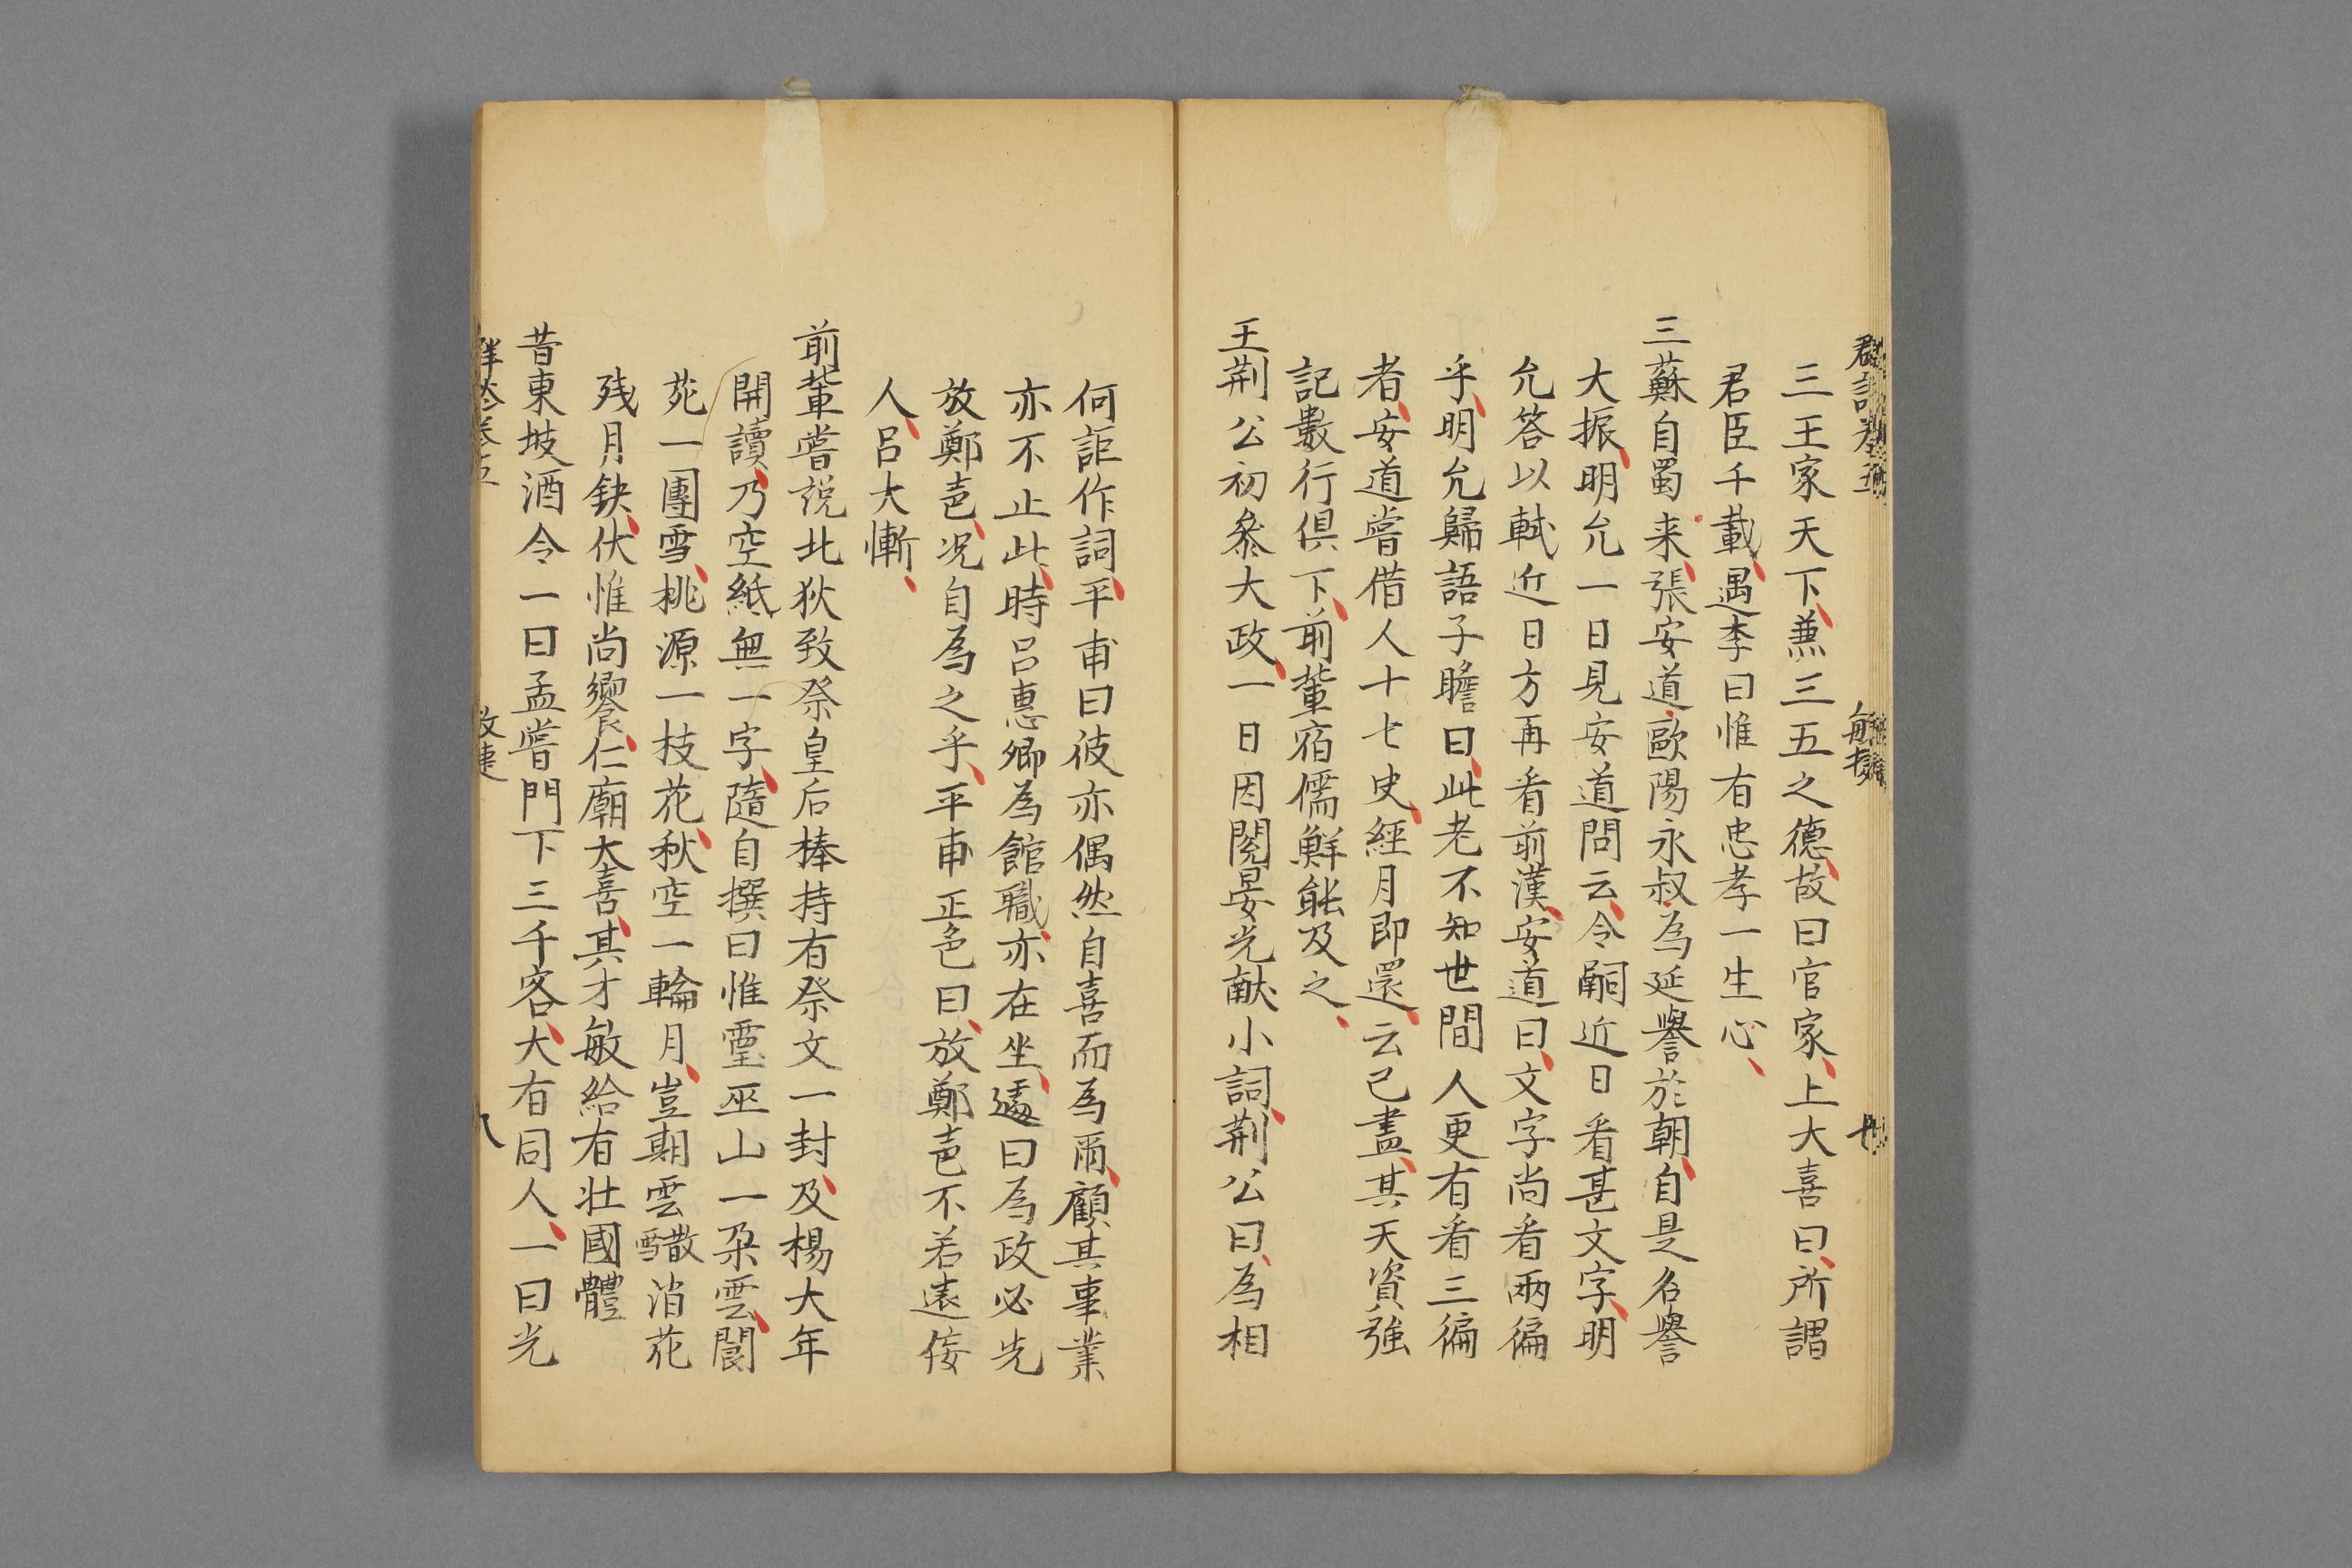 三王家天下兼三五之德故曰官家上大喜曰所謂
君臣千載遇李曰惟有忠孝一生心
三蘇自蜀来張安道歐陽永叔為延譽於朝自是名譽
大振明允一日見安道問云令嗣近日看甚文字明
允答以軾近日方再看前漢安道曰文字尚看兩徧
乎明允歸語子瞻曰此老不知世間人更有看三徧
者安道嘗借人十七史經月即還云已盡其天資強
記數行俱下前輩宿儒鮮能及之
王荆公初叅大政一日因閱晏元献小詞荆公曰為相
何詎作詞平甫曰彼亦偶然自喜而為爾顧其事業
亦不止此時吕惠卿為館職亦在坐遽曰為政必先
放鄭声况自為之乎平甫正色曰放鄭声不若遠佞
人吕大慚
前輩嘗説北狄致祭皇后棒持有祭文一封及楊大年
開讀乃空紙無一字隨自撰曰惟靈巫山一朶雲閬
苑一團雪桃源一枝花秋空一輪月豈期雲散雪消花
残月缺伏惟尚饗仁廟大喜其才敏給有壮國體
昔東坡酒令一曰孟嘗門下三千客大有同人一曰光